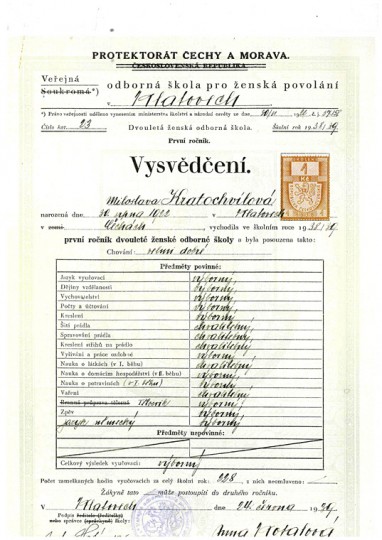 PROTEKTORÁT ČECHY A MORAVA.
ČESKOSLOVENSKÁ REPUBLIKA
Veřejná
Soukromá*) odborná škola pro ženská povolání
v Klatovech
*) Právo veřejnosti uděleno vynesením ministerstva školství a národní osvěty ze dne
Číslo kat. 23 Dvouletá ženská odborná škola. Školní rok 1938/39
První ročník.
Vysvědčení.
1
Miloslava Kratochvílová
narozená dne 30. října 1922 v Klatovech
v zemi Čechách, vychodila ve školním roce 1938/39
první ročník dvouleté ženské odborné školy a byla posouzena takto:
Chování: velmi dobré
Předměty povinné:
Jazyk vyučovací výborný,
Dějiny vzdělanosti výborný,
Vychovatelství výborný,
Počty a účtování výborný,
Kreslení výborný,
Šití prádla chvalitebný,
Spravování prádla chvalitebný,
Kreslení střihů na prádlo chvalitebný,
Vyšívání a práce ozdobné výborný,
Nauka o látkách (v I. běhu) chvalitebný,
Nauka o domácím hospodářství (v II. běhu) výborný,
Nauka o potravinách (v I. běhu) výborný,
Vaření chvalitebný,
Branná příprava tělesná Tělocvik výborný,
Zpěv výborný,
jazyk německý výborný
Předměty nepovinné:
Celkový výsledek vyučovací: výborný
Počet zameškaných hodin vyučovacích za celý školní rok: 228, z nich neomluveno:
Žákyně tato může postoupiti do druhého ročníku.
V Klatovech dne 24. června 1939
Podpis ředitele (ředitelky)
nebo správce (správkyně) školy:
Anna